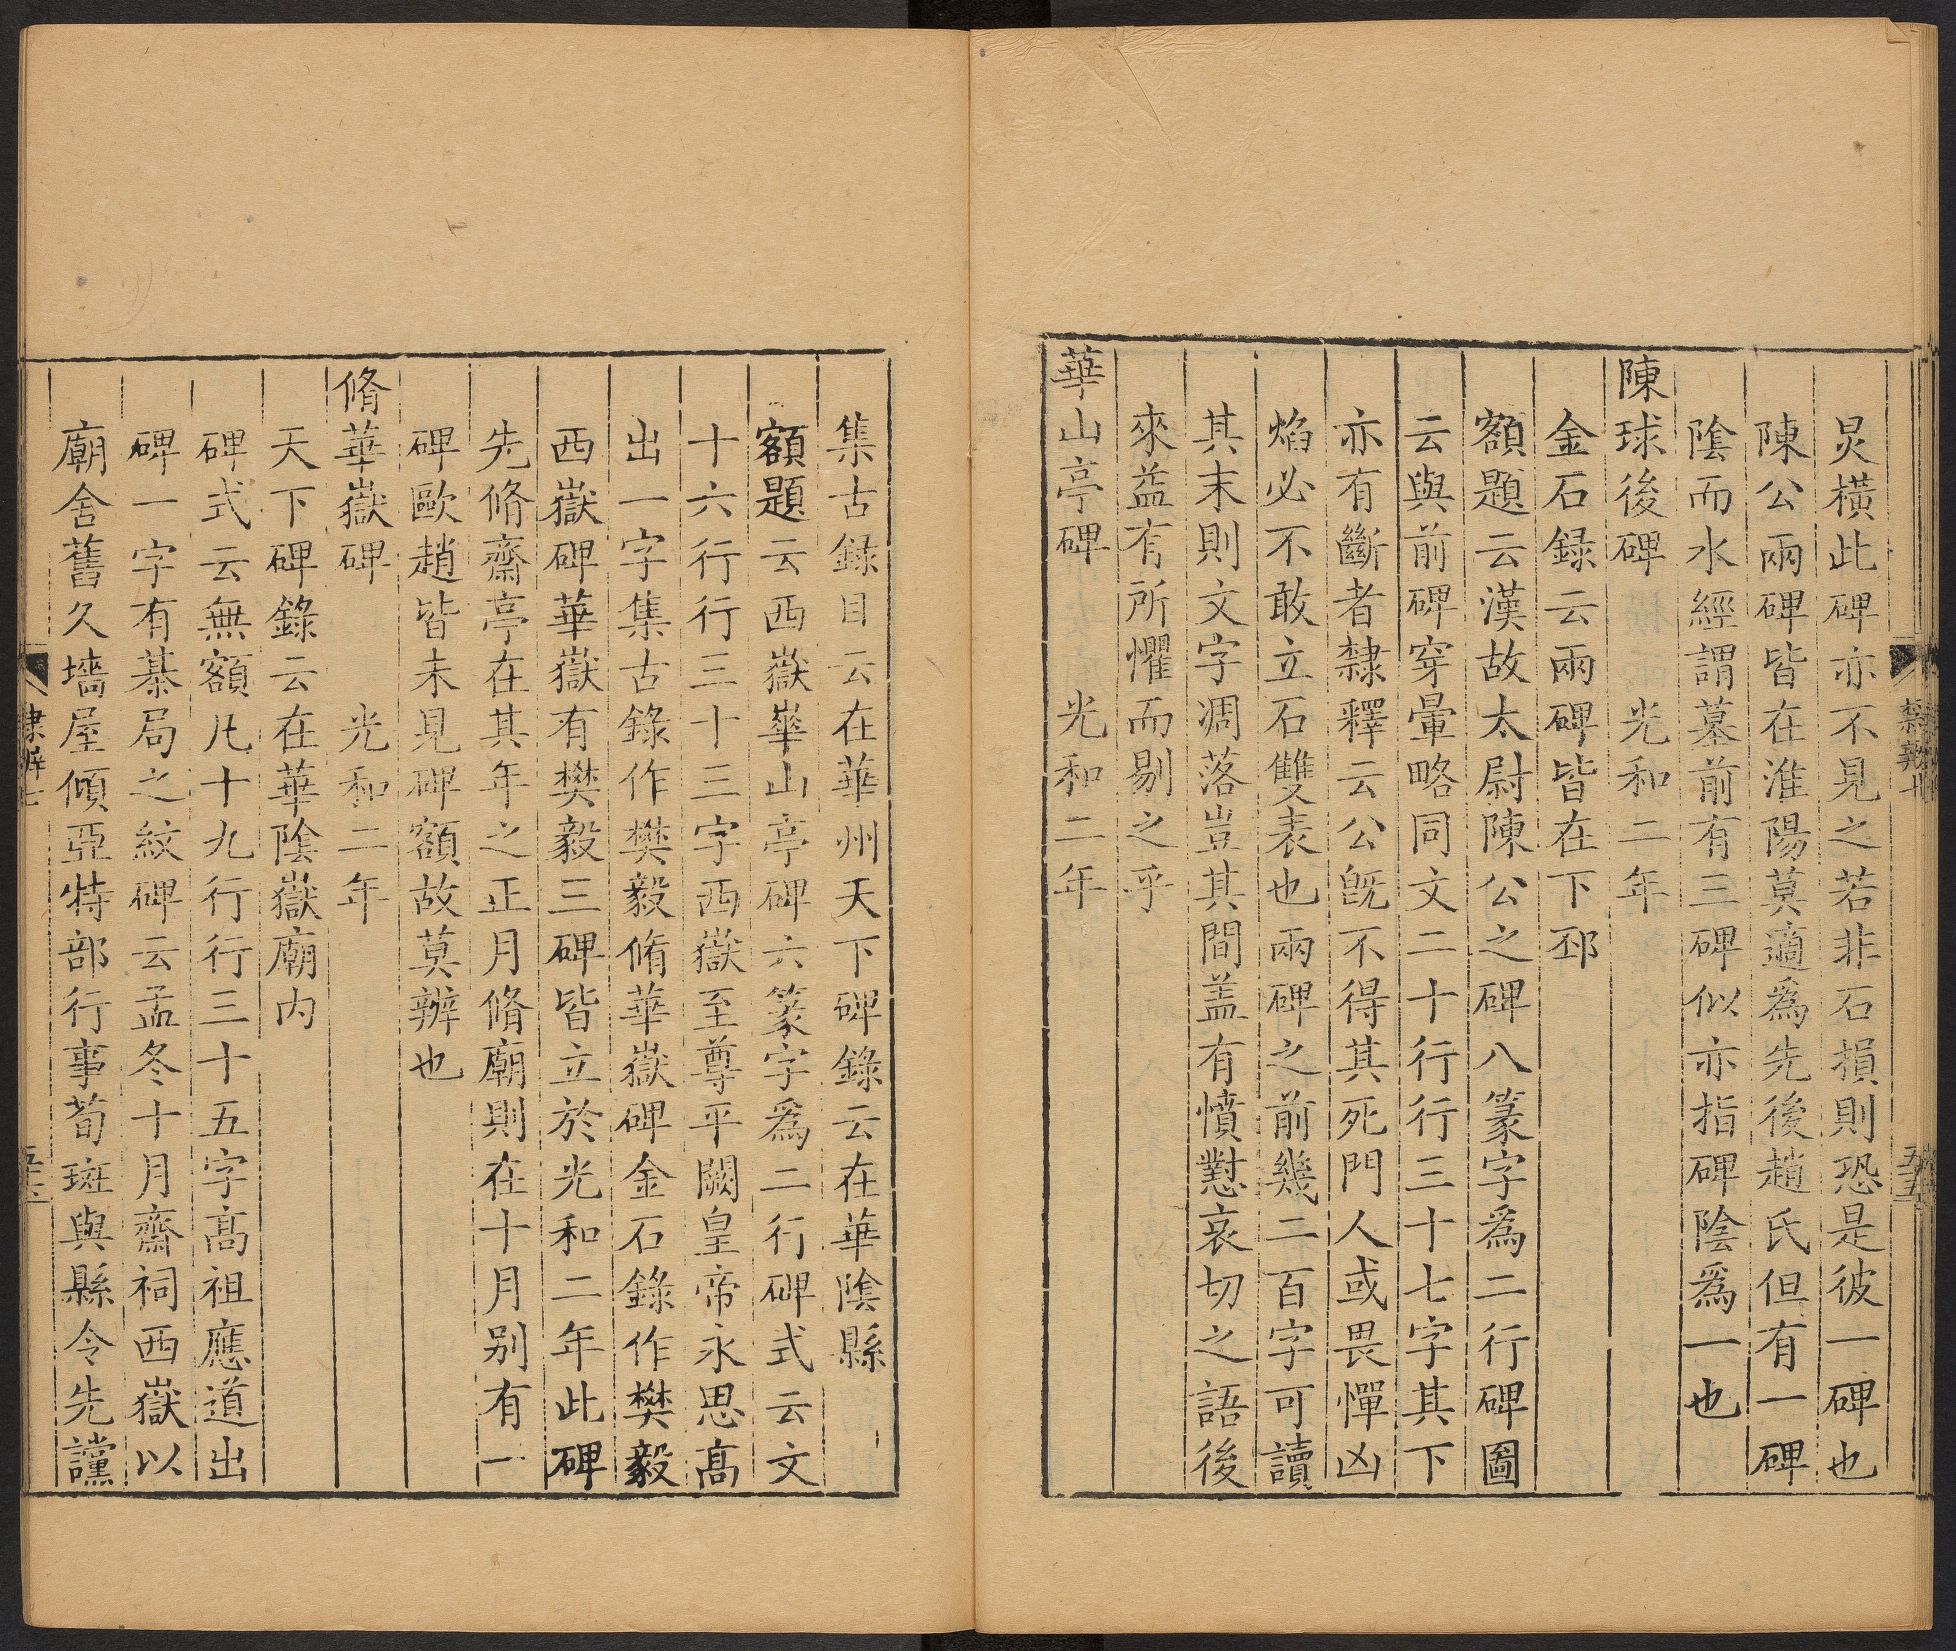 炅橫此碑亦不見之若非石損則恐是彼一碑也
陳公兩碑皆在淮陽莫適爲先後趙氏但有一碑
隂而水經謂墓前有三碑似亦指碑陰爲一也
陳球後碑　光和二年
金石録云兩碑皆在下邳
額題云漢故太尉陳公之碑八篆字爲二行碑圖
云與前碑穿暈略同文二十行行三十七字其下
亦有斷者隸釋云公旣不得其死門人或畏憚凶
焰必不敢立石雙表也兩碑之前幾二百字可讀
其末則文字凋落豈其間盖有憤懟哀切之語後
來益有所懼而剔之乎
華山亭碑　光和二年
集古録目云在華州天下碑錄云在華隂縣
額題云西嶽崋山亭碑六篆字爲二行碑式云文
十六行行三十三字西嶽至尊平闕皇帝永思高
出一字集古錄作樊毅脩華嶽碑金石錄作樊毅
西嶽碑華嶽有樊毅三碑皆立於光和二年此碑
先脩齋亭在其年之正月脩廟則在十月别有一
碑歐趙皆未見碑額故莫辨也
脩華嶽碑　光和二年
天下碑錄云在華隂嶽廟内
碑式云無額凡十九行行三十五字高祖應道出
碑一字有棊局之紋碑云孟冬十月齋祠西嶽以
廟舍舊久墻屋傾亞特部行事荀斑與縣令先讜